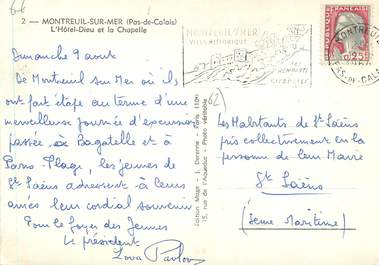 2 — MONTREUIL-SUR-MER (Pas-de-Calais)
L'Hôtel-Dieu et la Chapelle
Dimanche 9 août
De Montreuil sur Mer où ils
ont fait étape au terme d'une
merveilleuse journée d'excursion
passée à Bagatelle et à
Paris-Plage, les jeunes de
St Saëns adressent à leurs
aînés leur cordial souvenir
Pour le Foyer des Jeunes
Le président
MONTREUIL S/MER
VILLE HISTORIQUE
SES
REMPARTS
CITADELLE
0,25
MONTREUIL
PAS-DE-CALAIS
Edition Mage
15, rue de l'Aqueduc - Photo véritable
(62)
Les Habitants de St Saëns
pris collectivement en la
personne de leur Maire
St Saëns
(Seine Maritime)